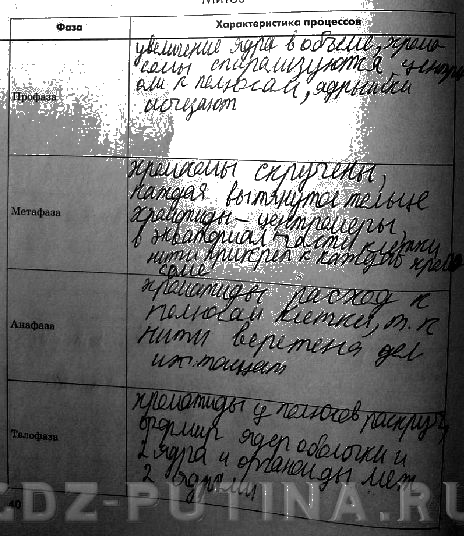 Митоз
Фаза
Характеристика процессов
Профаза
увеличение ядра в объеме, хромо
сомы спирализуются, центри
оли к полюсам, ядрышки
исчезают
Метафаза
хромосомы скручены,
каждая вытянутое тельце
хроматиды – центромеры,
в экваториал части клетки
нити прикреп к каждой хромо
соме
Анафаза
хроматиды расход к
полюсам клетки, т. к
нити веретена дел
их тащат
Телофаза
хроматиды у полюсов раскруч,
формир ядер оболочки и
2 ядра и органоиды меж
2 ядрами
40
GDZ-PUTINA.RU